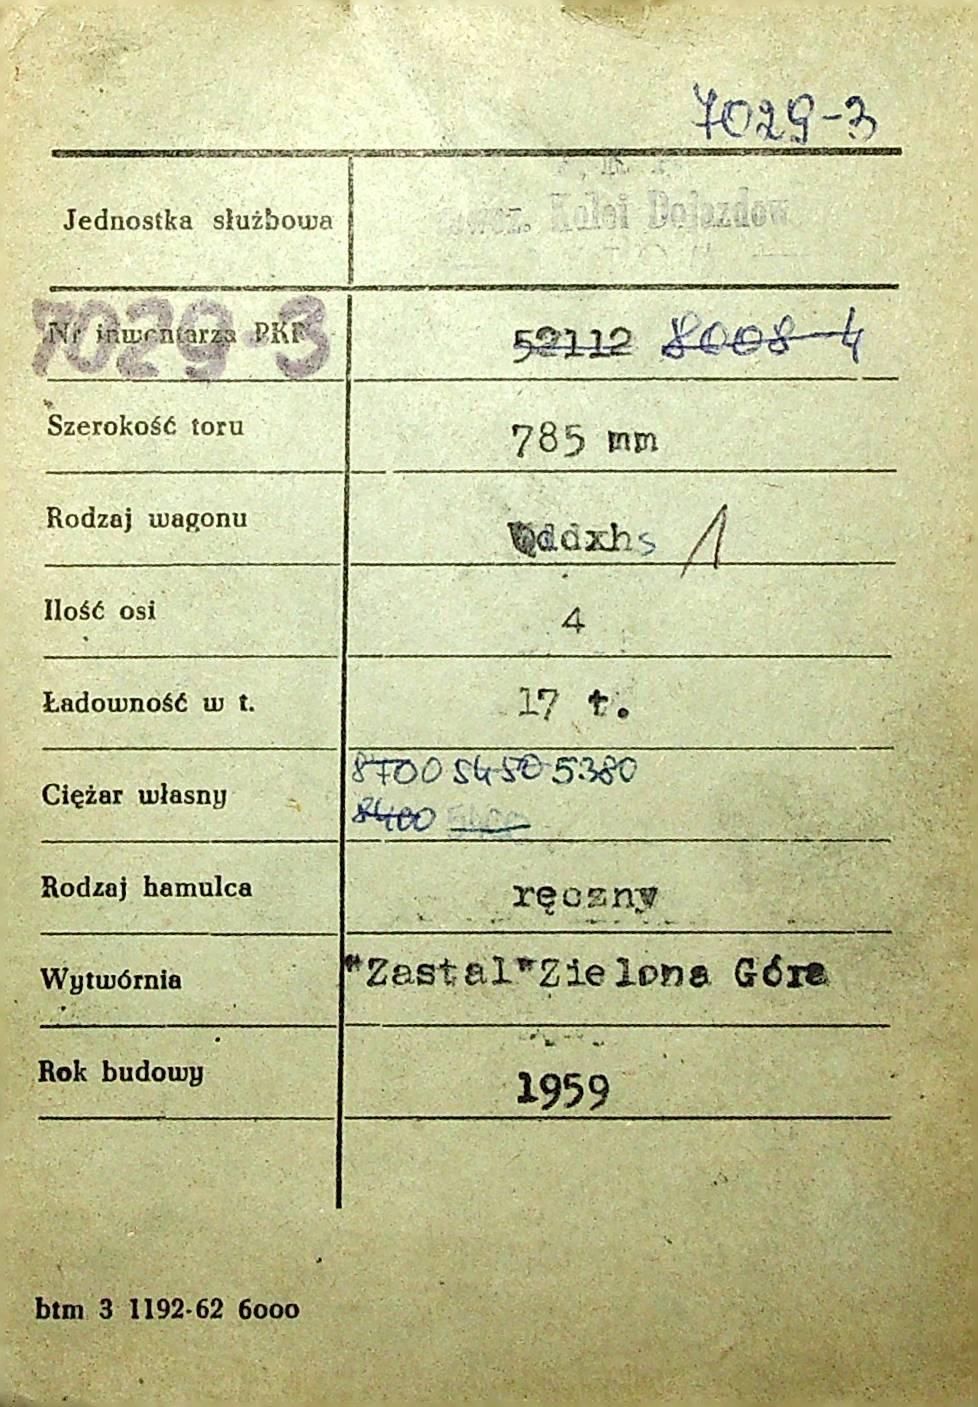 7029-3
Jednostka służbowa
Kolei Dojazdow
7029-3
Nr inwentarza PKP 52112 8008-4
Szerokość toru 785 mm
Rodzaj wagonu ddxhs 1
Ilość osi 4
Ładowność w t. 17 t.
8700 5450 5380
Ciężar własny
8400 5400
Rodzaj hamulca ręczny
Wytwórnia "Zastal" Zielona Góra
Rok budowy 1959
btm 3 1192-62 6000